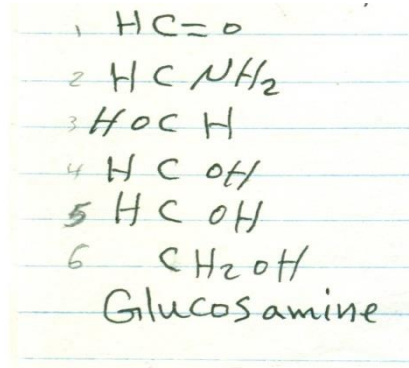 1 HC=O
2 HC NH2
3 HOC H
4 H C OH
5 HC OH
6 CH2OH
Glucosamine